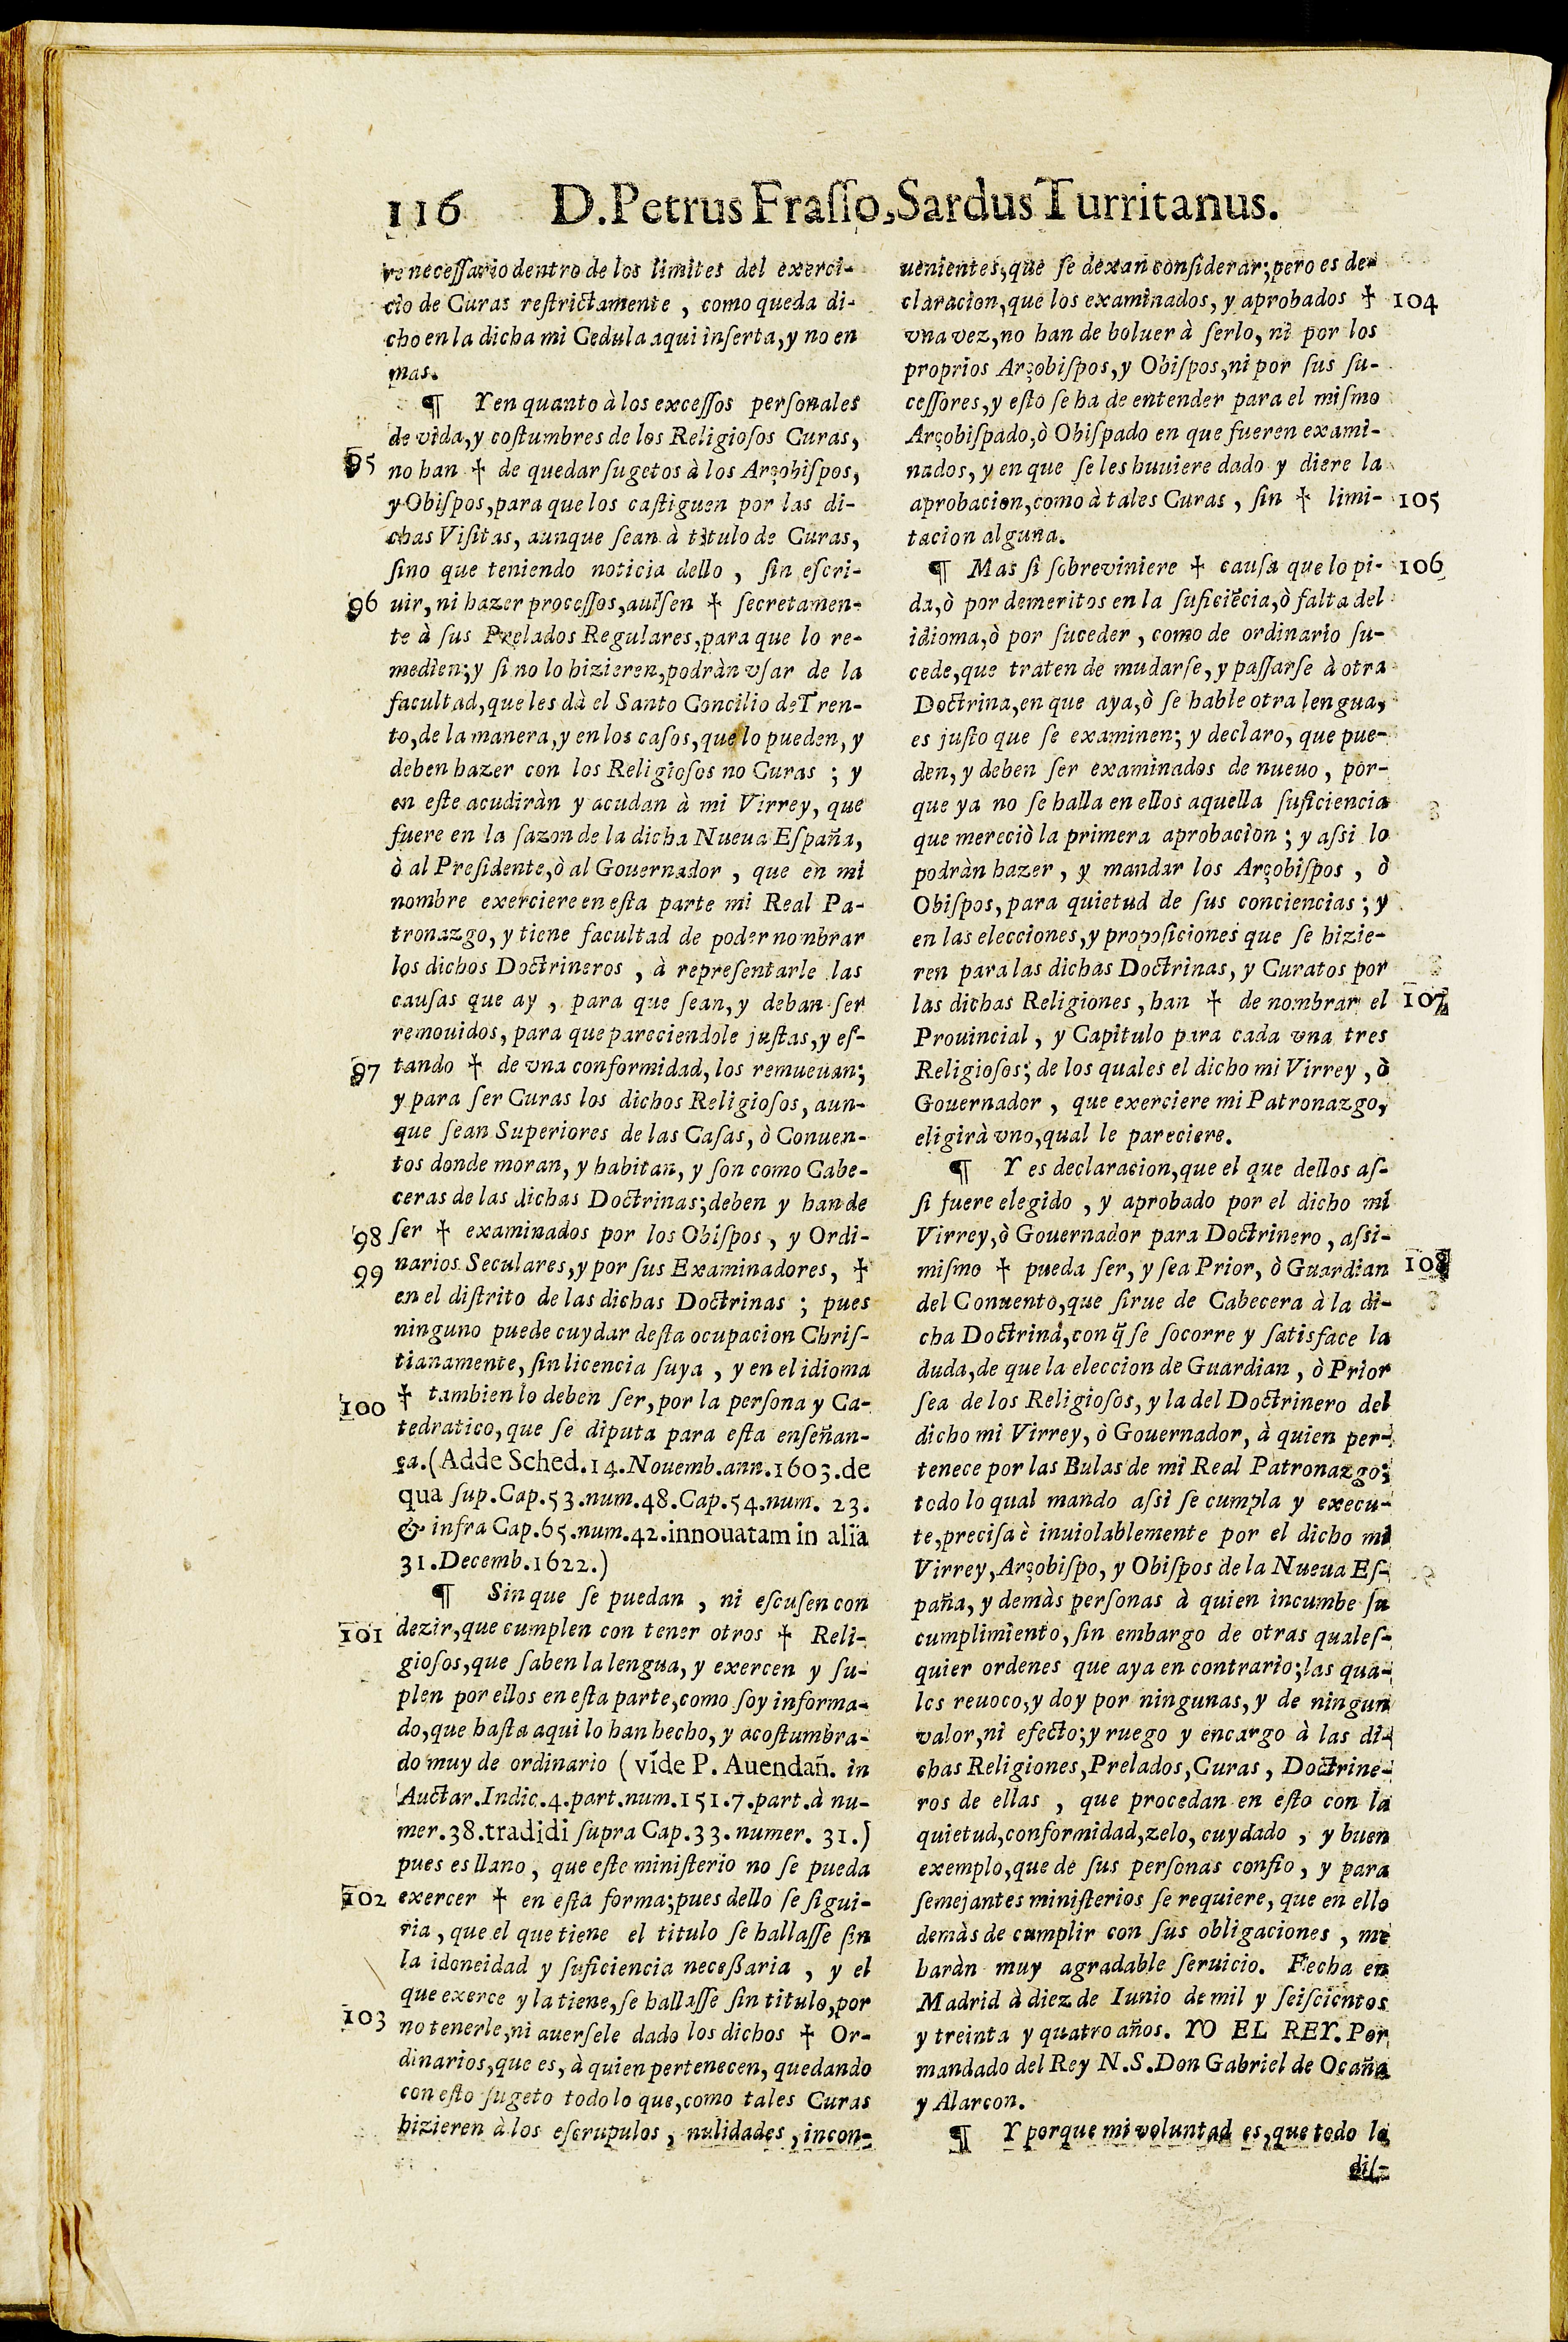 116 D. Petrus Fraſſo, Sardus Turritanus.
re neceſſario dentro de los limites del exerci-
cio de Curas reſtrictamente, como queda di-
cho en la dicha mi Cedula aqui inſerta, y no en
mas.
¶ Y en quanto à los exceſſos perſonales
de vida, y coſtumbres de los Religioſos Curas,
95 no han † de quedar ſugetos à los Arçobiſpos,
y Obiſpos, para que los caſtiguen por las di-
chas Viſitas, aunque ſean à titulo de Curas,
ſino que teniendo noticia dello, ſin eſcri-
96 uir, ni hazer proceſſos, auiſen † ſecretamen-
te à ſus Prelados Regulares, para que lo re-
medien; y ſi no lo hizieren, podràn vſar de la
facultad, que les dà el Santo Concilio de Tren-
to, de la manera, y en los caſos, que lo pueden, y
deben hazer con los Religioſos no Curas; y
en eſte acudiràn y acudan à mi Virrey, que
fuere en la ſazon de la dicha Nueua Eſpaña,
ò al Preſidente, ò al Gouernador, que en mi
nombre exerciere en eſta parte mi Real Pa-
tronazgo, y tiene facultad de poder nombrar
los dichos Doctrineros, à repreſentarle las
cauſas que ay, para que ſean, y deban ſer
remouidos, para que pareciendole juſtas, y eſ-
97 tando † de vna conformidad, los remueuan;
y para ſer Curas los dichos Religioſos, aun-
que ſean Superiores de las Caſas, ò Conuen-
tos donde moran, y habitan, y ſon como Cabe-
ceras de las dichas Doctrinas; deben y han de
98 ſer † examinados por los Obiſpos, y Ordi-
99 narios Seculares, y por ſus Examinadores, †
en el diſtrito de las dichas Doctrinas; pues
ninguno puede cuydar deſta ocupacion Chriſ-
tianamente, ſin licencia ſuya, y en el idioma
100 † tambien lo deben ſer, por la perſona y Ca-
tedratico, que ſe diputa para eſta enſeñan-
ça. (Adde Sched. 14. Nouemb. ann. 1603. de
qua ſup. Cap. 53. num. 48. Cap. 54. num. 23.
& infra Cap. 65. num. 42. innouatam in alia
31. Decemb. 1622.)
¶ Sin que ſe puedan, ni eſcuſen con
101 dezir, que cumplen con tener otros † Reli-
gioſos, que ſaben la lengua, y exercen y ſu-
plen por ellos en eſta parte, como ſoy informa-
do, que haſta aqui lo han hecho, y acoſtumbra-
do muy de ordinario (vide P. Auendañ. in
Auctar. Indic. 4. part. num. 151. 7. part. à nu-
mer. 38. tradidi ſupra Cap. 33. numer. 31.)
pues es llano, que eſte miniſterio no ſe pueda
102 exercer † en eſta forma; pues dello ſe ſigui-
ria, que el que tiene el titulo ſe hallaſſe ſin
la idoneidad y ſuficiencia neceßaria, y el
que exerce y la tiene, ſe hallaſſe ſin titulo, por
103 no tenerle, ni auerſele dado los dichos † Or-
dinarios, que es, à quien pertenecen, quedando
con eſto ſugeto todo lo que, como tales Curas
hizieren à los eſcrupulos, nulidades, incon-
uenientes, que ſe dexan conſiderar; pero es de-
claracion, que los examinados, y aprobados † 104
vna vez, no han de boluer à ſerlo, ni por los
proprios Arçobiſpos, y Obiſpos, ni por ſus ſu-
ceſſores, y eſto ſe ha de entender para el miſmo
Arçobiſpado, ò Obiſpado en que fueren exami-
nados, y en que ſe les huuiere dado y diere la
aprobacion, como à tales Curas, ſin † limi- 105
tacion alguna.
¶ Mas ſi ſobreviniere † cauſa que lo pi- 106
da, ò por demeritos en la ſuficiẽcia, ò falta del
idioma, ò por ſuceder, como de ordinario ſu-
cede, que traten de mudarſe, y paſſarſe à otra
Doctrina, en que aya, ò ſe hable otra lengua,
es juſto que ſe examinen; y declaro, que pue-
den, y deben ſer examinados de nueuo, por-
que ya no ſe halla en ellos aquella ſuficiencia
que mereciò la primera aprobacion; y aſsi lo
podràn hazer, y mandar los Arçobiſpos, ò
Obiſpos, para quietud de ſus conciencias; y
en las elecciones, y propoſiciones que ſe hizie-
ren para las dichas Doctrinas, y Curatos por
las dichas Religiones, han † de nombrar el 107
Prouincial, y Capitulo para cada vna tres
Religioſos; de los quales el dicho mi Virrey, ò
Gouernador, que exerciere mi Patronazgo,
eligirà vno, qual le pareciere.
¶ Y es declaracion, que el que dellos aſ-
ſi fuere elegido, y aprobado por el dicho mi
Virrey, ò Gouernador para Doctrinero, aſsi-
miſmo † pueda ſer, y ſea Prior, ò Guardian 108
del Conuento, que ſirue de Cabecera à la di-
cha Doctrina, con q̃ ſe ſocorre y ſatisface la
duda, de que la eleccion de Guardian, ò Prior
ſea de los Religioſos, y la del Doctrinero del
dicho mi Virrey, ò Gouernador, à quien per-
tenece por las Bulas de mi Real Patronazgo;
todo lo qual mando aſsi ſe cumpla y execu-
te, preciſa è inuiolablemente por el dicho mi
Virrey, Arçobiſpo, y Obiſpos de la Nueua Eſ-
paña, y demàs perſonas à quien incumbe ſu
cumplimiento, ſin embargo de otras qualeſ-
quier ordenes que aya en contrario; las qua-
les reuoco, y doy por ningunas, y de ningun
valor, ni efecto; y ruego y encargo à las di-
chas Religiones, Prelados, Curas, Doctrine-
ros de ellas, que procedan en eſto con la
quietud, conformidad, zelo, cuydado, y buen
exemplo, que de ſus perſonas confio, y para
ſemejantes miniſterios ſe requiere, que en ello
demàs de cumplir con ſus obligaciones, me
haràn muy agradable ſeruicio. Fecha en
Madrid à diez de Iunio de mil y ſeiſcientos
y treinta y quatro años. YO EL REY. Por
mandado del Rey N. S. Don Gabriel de Ocaña
y Alarcon.
¶ Y porque mi voluntad es, que todo lo
diſ-